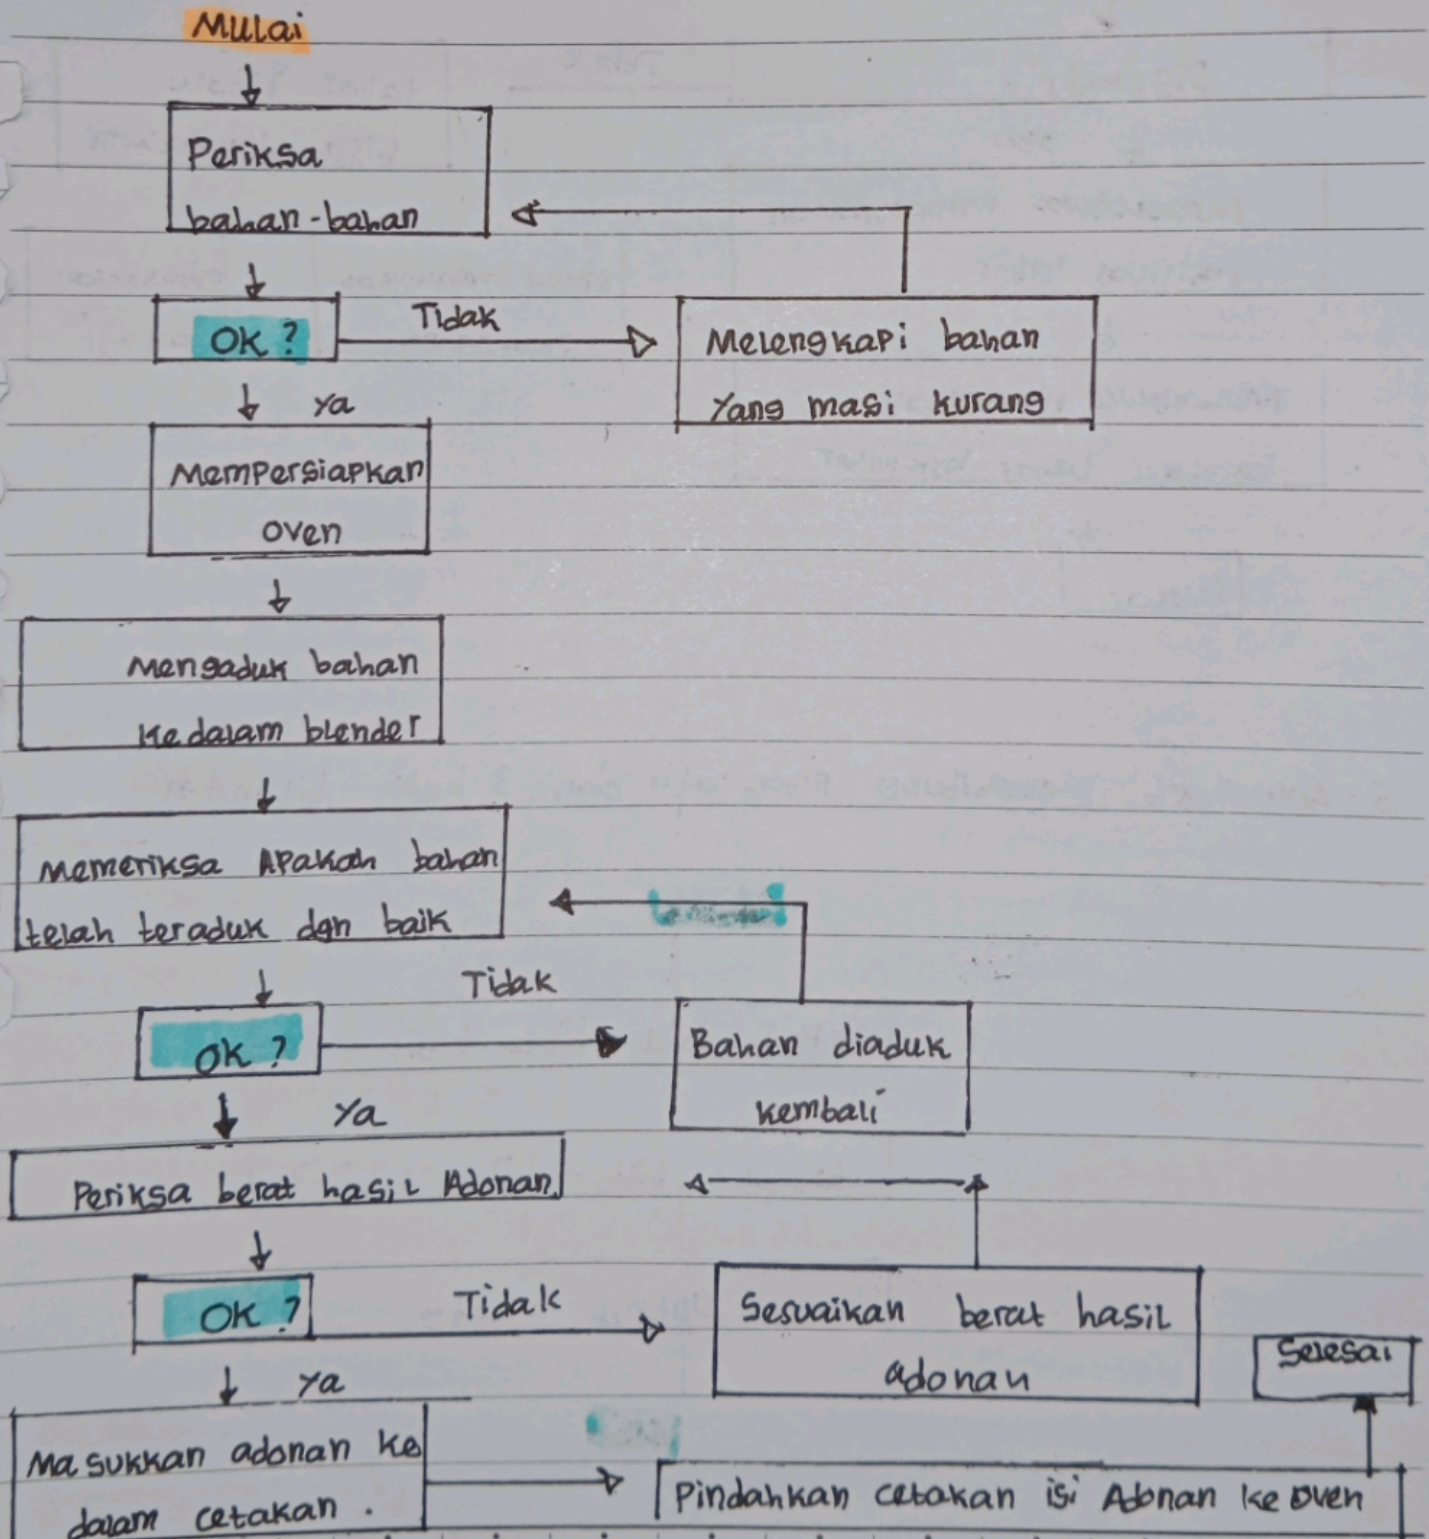 Mulai
Periksa
bahan-bahan
OK ?
Tidak
Melengkapi bahan
yang masi kurang
Ya
Mempersiapkan
oven
Mengaduk bahan
kedalam blender
Memeriksa Apakah bahan
telah teraduk dgn baik
Tidak
OK ?
Bahan diaduk
kembali
Ya
Periksa berat hasil Adonan
OK ?
Tidak
Sesuaikan berat hasil
adonan
Selesai
Ya
Masukkan adonan ke
dalam cetakan .
Pindahkan cetakan isi Adonan ke oven